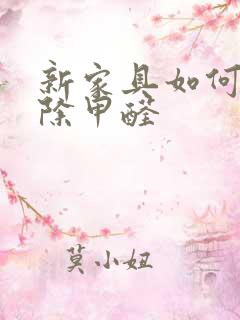 新家具如何
除甲醛
莫小妞